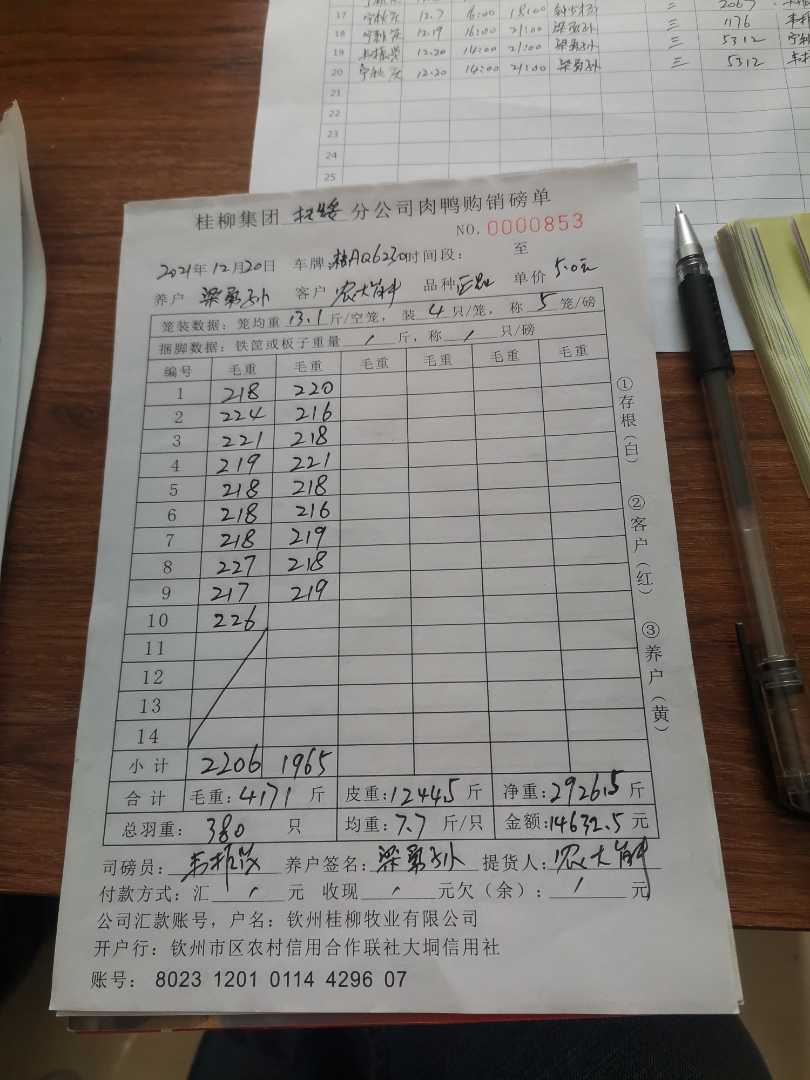 17 12.7 16:00 18:00 三 2067
18 12.19 16:00 21:00 三 1176
19 12.20 14:00 21:00 三 5312
20 12.20 14:00 21:00 三 5312
21
22
23
24
25
桂柳集团 扶绥 分公司肉鸭购销磅单
NO. 0000853
2021年12月20日 车牌:桂AQ6230 时间段: 至
养户 客户 农大 品种 单价 5.0元
笼装数据: 笼均重 13.1 斤/空笼, 装 4 只/笼, 称 5 笼/磅
捆脚数据: 铁筐或板子重量 / 斤, 称 / 只/磅
编号 毛重 毛重 毛重 毛重 毛重 毛重
1 218 220
2 224 216
3 221 218
4 219 221
5 218 218
6 218 216
7 218 219
8 227 218
9 217 219
10 226
11
12
13
14
小计 2206 1965
合计 毛重: 4171 斤 皮重: 1244.5 斤 净重: 2926.5 斤
总羽重: 380 只 均重: 7.7 斤/只 金额: 14632.5 元
司磅员: 养户签名: 提货人: 农大
付款方式: 汇 / 元 收现 / 元 欠(余): / 元
公司汇款账号, 户名: 钦州桂柳牧业有限公司
开户行: 钦州市区农村信用合作联社大垌信用社
账号: 8023 1201 0114 4296 07
①存根(白)
②客户(红)
③养户(黄)